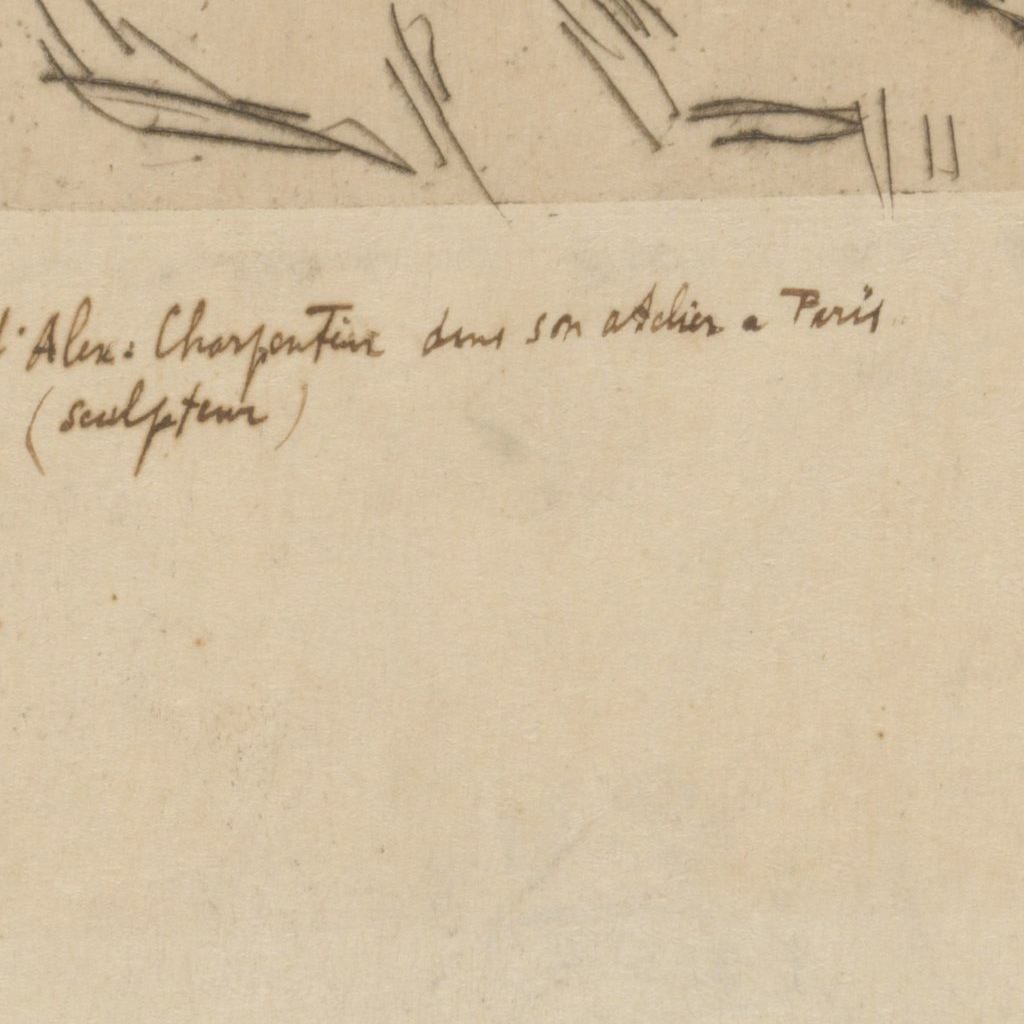 d'Alex: Charpentier dans son atelier a Paris
(sculpteur)